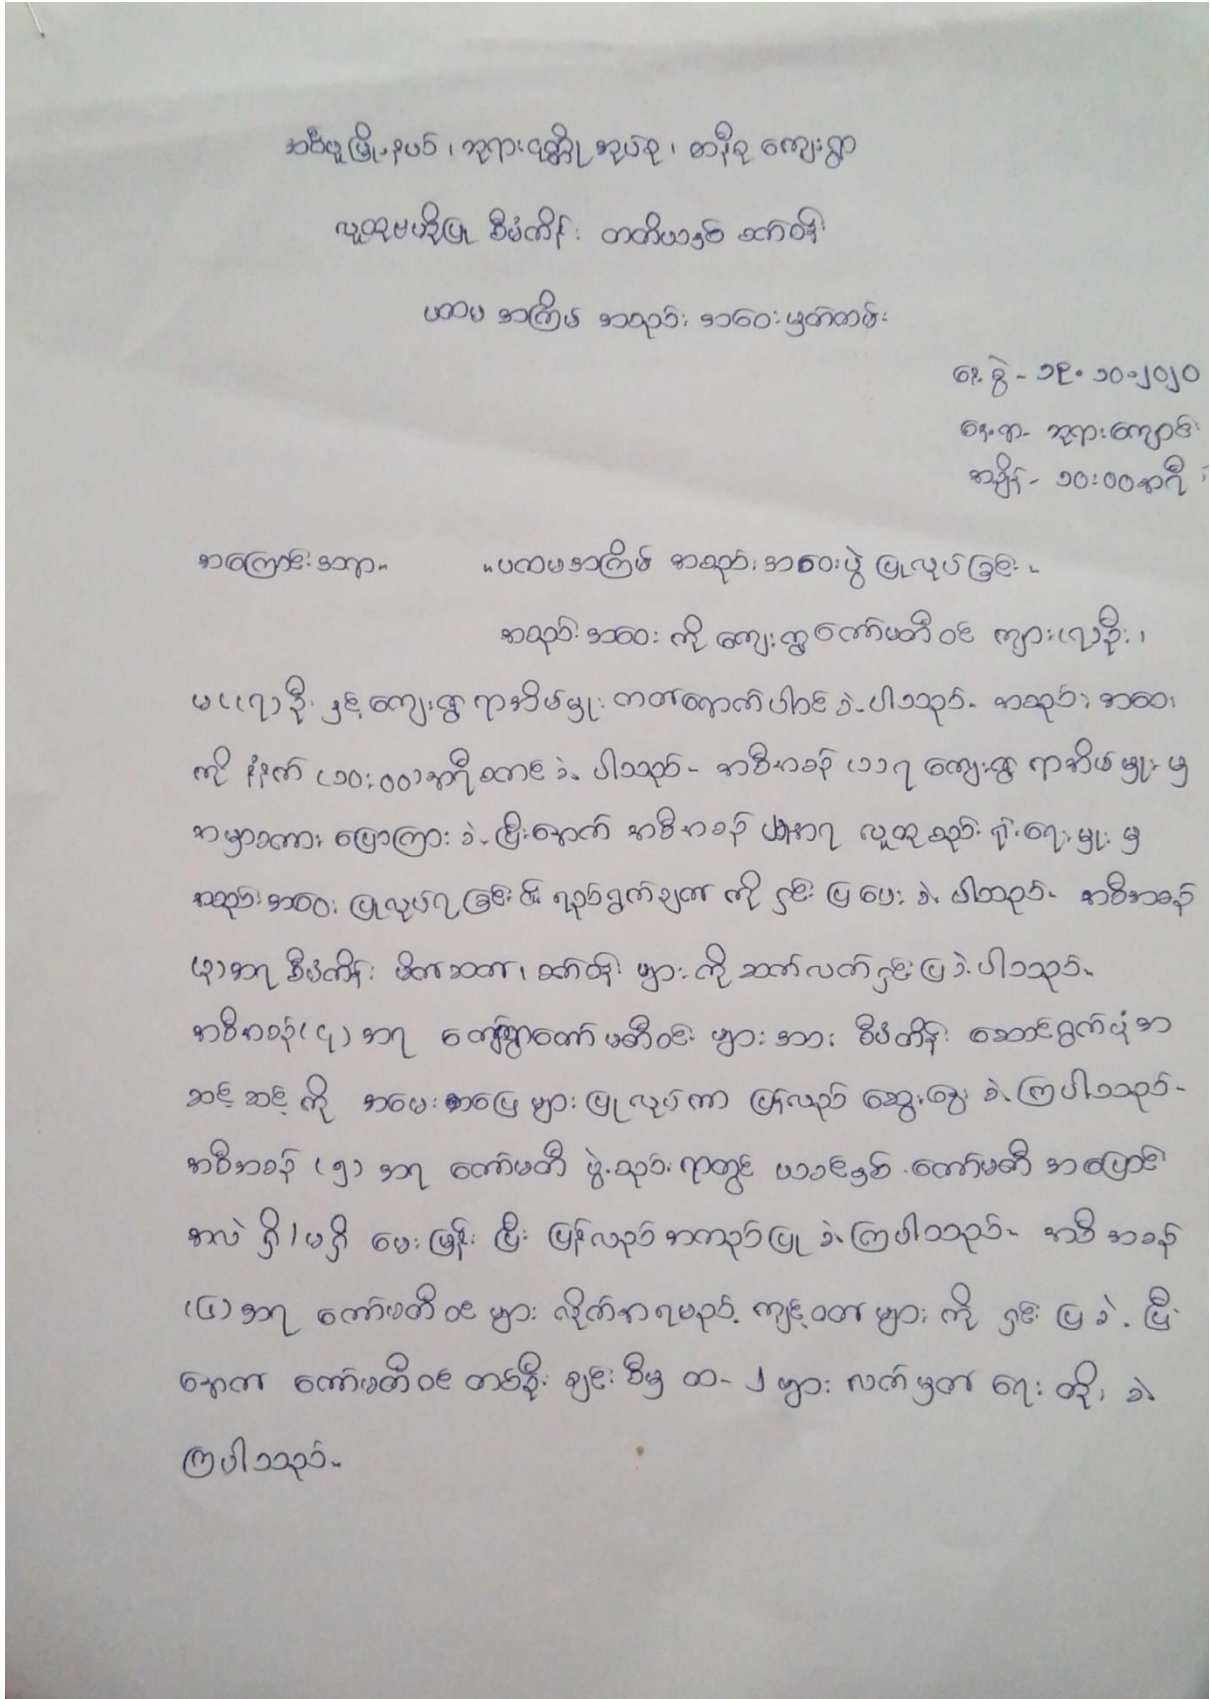 ဘုရားငုတ္တိုအုပ်စု၊ ကျေးရွာ
လူထုဗဟိုပြု စီမံကိန်း တတိယနှစ် စက်ဝန်း
ပထမ အကြိမ် အစည်း အဝေး မှတ်တမ်း
နေ့စွဲ - ၁၉.၁၀.၂၀၂၀
နေရာ - ဘုရားကျောင်း
အချိန် - ၁၀:၀၀နာရီ
အကြောင်းအရာ။ "ပထမအကြိမ် အစည်းအဝေးပွဲ ပြုလုပ်ခြင်း"
အစည်းအဝေး ကို ကျေးရွာကော်မတီဝင် ကျား ဦး၊
မ (၇) ဦး နှင့် ကျေးရွာ ရာအိမ်မှူး တက်ရောက်ပါဝင် ခဲ့ပါသည်။ အစည်း အဝေး
ကို နံနက် (၁၀:၀၀) နာရီ စတင် ခဲ့ ပါသည်။ အစီအစဉ် (၁) အရ ကျေးရွာ ရာအိမ်မှူး မှ
အမှာစကား ပြောကြား ခဲ့ပြီးနောက် အစီအစဉ် အရ လူထု စည်းရုံးရေးမှူး မှ
အစည်းအဝေး ပြုလုပ်ရခြင်း ၏ ရည်ရွက်ချက် ကို ရှင်း ပြ ပေး ခဲ့ ပါသည်။ အစီအစဉ်
(၃) အရ စီမံကိန်း မိတ်ဆက်၊ စက်ဝန်း များ ကို ဆက်လက်ရှင်း ပြ ခဲ့ ပါသည်။
အစီအစဉ် (၄) အရ ကျေးရွာကော်မတီဝင် များ အား စီမံကိန်း ဆောင်ရွက်ပုံ အ
ဆင့် ဆင့် ကို အမေး အဖြေ များ ပြုလုပ်ကာ ပြန်လည် ဆွေးနွေး ခဲ့ ကြပါသည်။
အစီအစဉ် (၅) အရ ကော်မတီ ဖွဲ့စည်း ရာတွင် ယခင်နှစ် ကော်မတီ အပြောင်း
အလဲ ရှိ / မရှိ မေးမြန်း ပြီး ပြန်လည် အတည်ပြု ခဲ့ ကြပါသည်။ အစီ အစဉ်
(၆) အရ ကော်မတီ ဝင် များ လိုက်နာရမည့် ကျင့်ဝတ် များ ကို ရှင်း ပြ ခဲ့ ပြီး
နောက် ကော်မတီဝင် တစ်ဦး ချင်း စီမှ ထ-၂ များ လက်မှတ် ရေး ထိုး ခဲ့
ကြပါသည်။